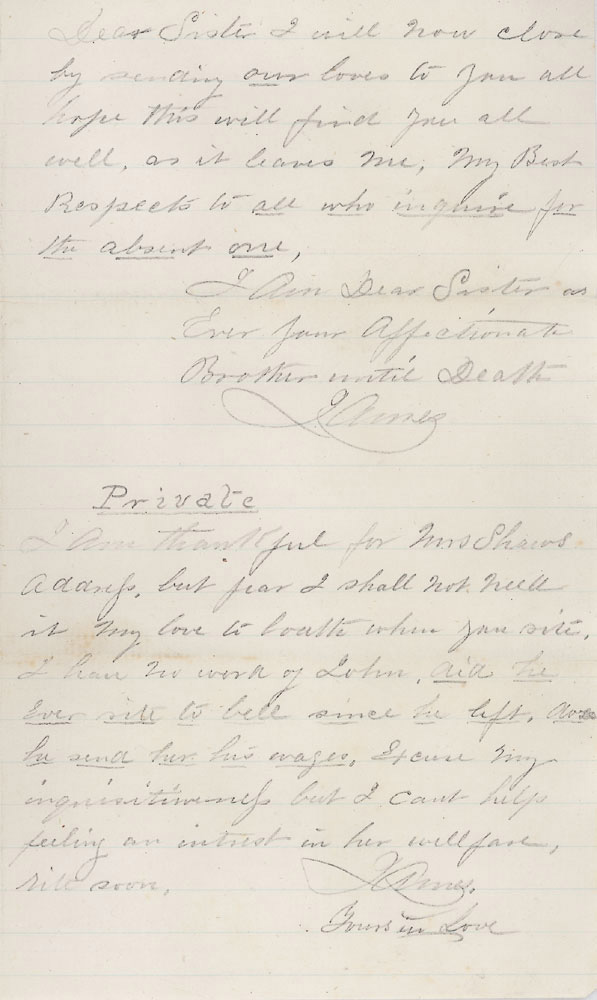 Dear Sister I will now close
by sending our loves to you all
hope this will find you all
well, as it leaves me, My Best
Respects to all who inquire for
the absent one,
I Am Dear Sister as
Ever your Affectionate
Brother until Death
James
Private
I Am thankful for Mrs Shaws
Address, but fear I shall not need
it My love to boath when you rite,
I have no word of John, did he
Ever rite to bell since he left, does
he send her his wages, Excuse my
inquisitiveness but I cant help
feiling an intrest in her wellfare,
rite soon,
James.
Yours in Love